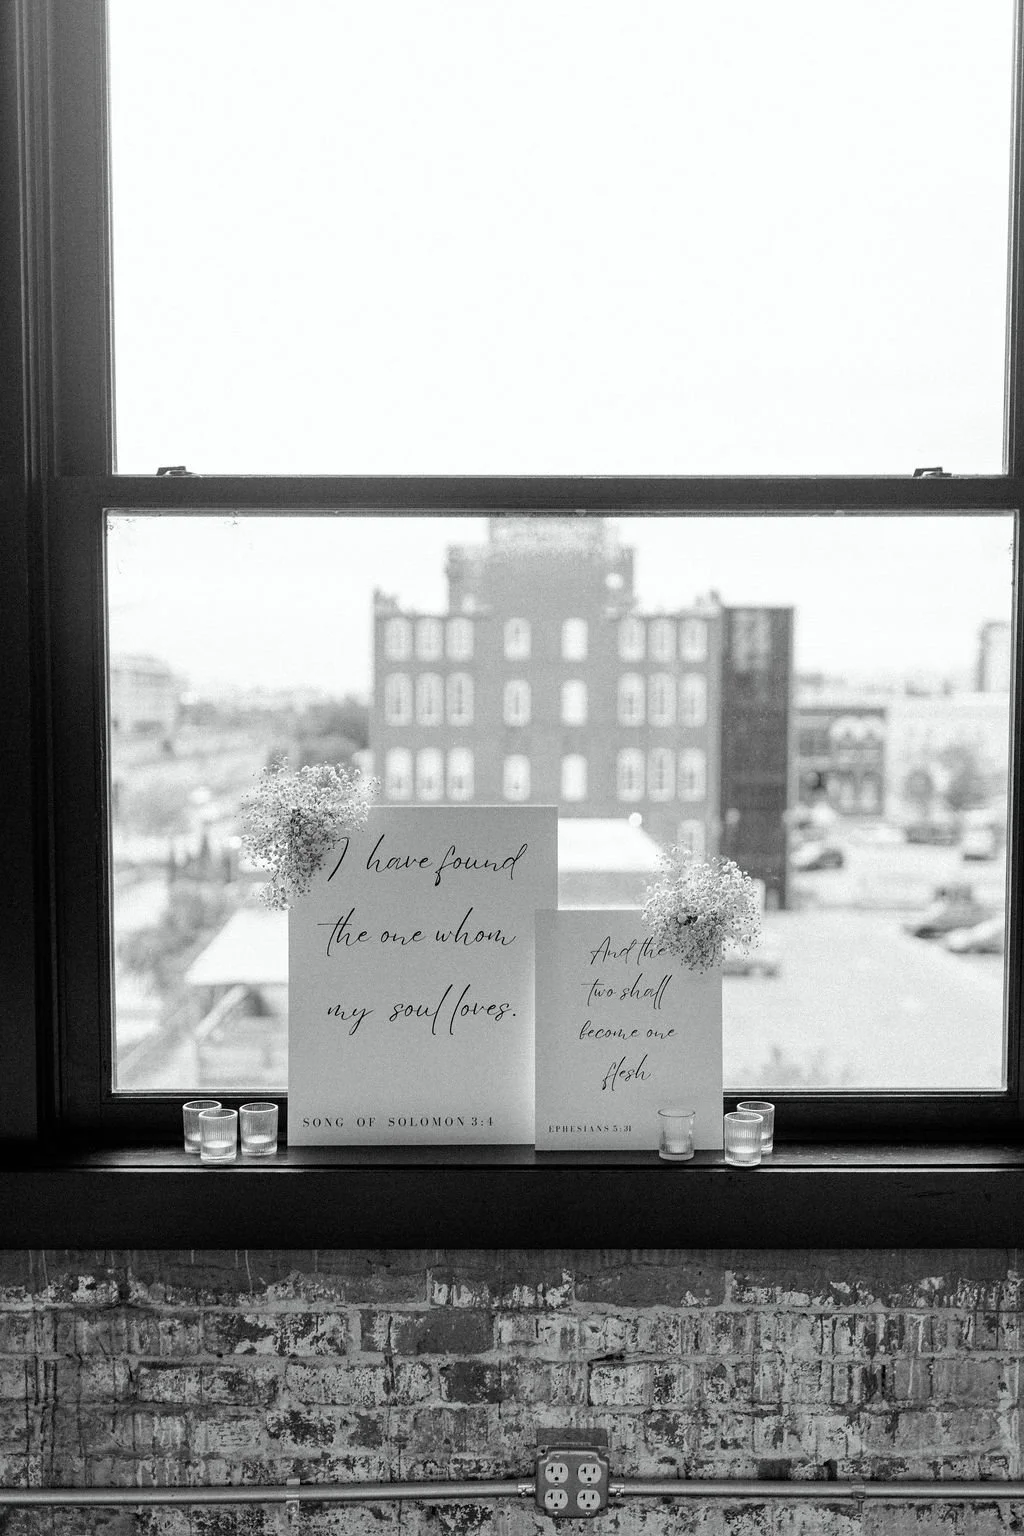 I have found
the one whom
my soul loves.
SONG OF SOLOMON 3:4
And the
two shall
become one
flesh
EPHESIANS 5:31